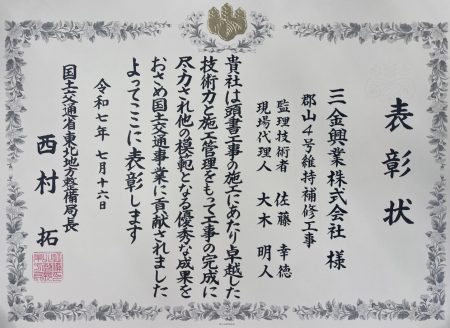 表彰状
三金興業株式会社 様
郡山4号維持補修工事
監理技術者 佐藤 幸徳
現場代理人 大木 明人
貴社は頭書工事の施工にあたり卓越した
技術力と施工管理をもって工事の完成に
尽力され他の模範となる優秀な成果を
おさめ国土交通事業に貢献されました
よってここに表彰します
令和七年 七月十六日
国土交通省東北地方整備局長
西村 拓